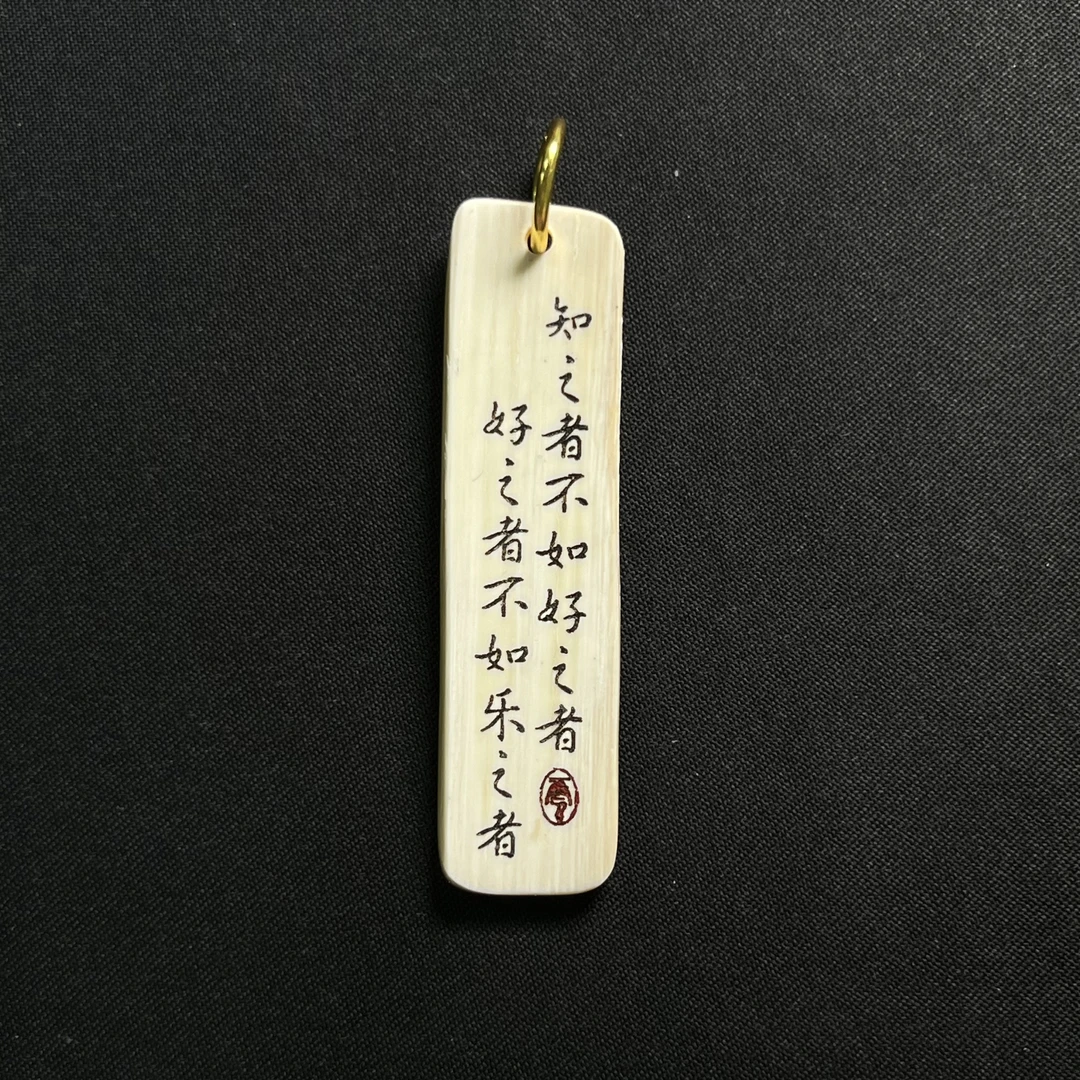 知之者不如好之者
好之者不如乐之者